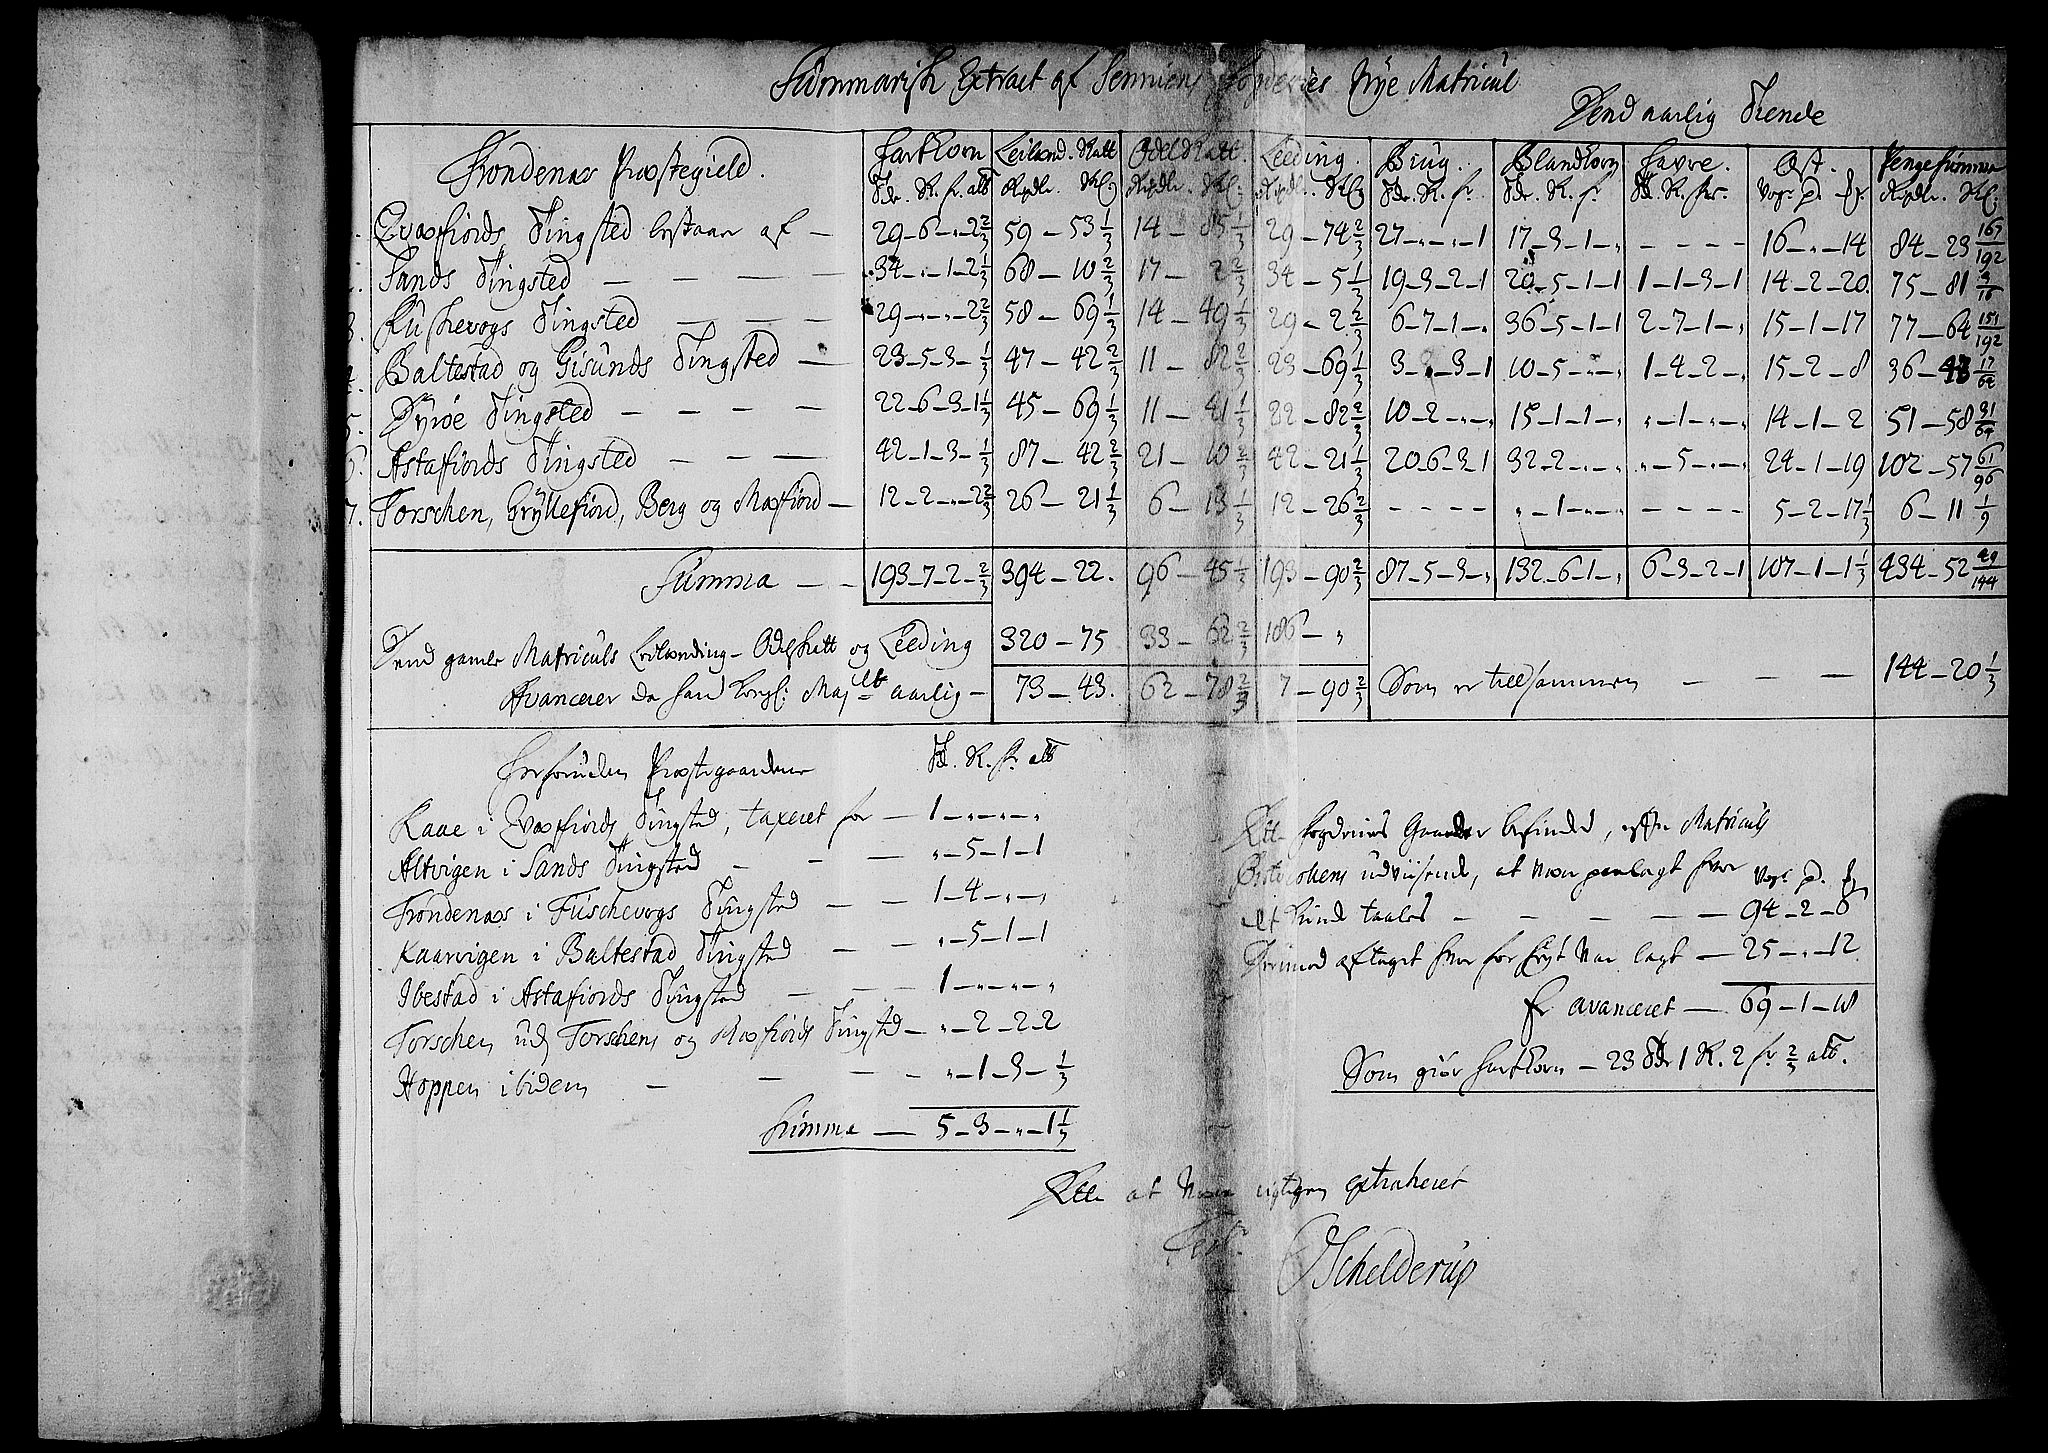 Summarisk Extract af Senniens Fogderies Nye Matricul
Dend aarlig Tiende
Trondenæs Præstegield. Hartkorn Leiland. Skatt Odelskatt. Leeding. Biug. Blandkorn Havre. Ost. Penge Summa
Tdr. S. fr. alb Rixdlr. Sk: Rixdlr. Sk: Rixdlr. Sk: Tdr. S. fr. Tdr. S. fr. Tdr. S. fr. Voger. pd. Rixdlr. Sk:
1. Qvæfiords Tingsted bestaaer af — 29-6-"-2 2/3 59-53 1/3 14-85 1/3 29-74 2/3 27-"-"-1 17-3-1-" - - - - 16-"-14 84-23 167/192
2. Sands Tingsted — — — 34-"-1-2 1/3 68-10 2/3 17-2 2/3 34-5 1/3 19-3-2-1 20-5-1-1 1-1-3-1 14-2-20. 75-81 9/16
3. Fuschevogs Tingsted — — — 29-"-"-2 2/3 58-69 1/3 14-49 1/3 29-2 2/3 6-7-1-" 36-5-1-1 2-7-1-" 15-1-17 77-64 151/192
4. Baltestad og Gisunds Tingsted — 23-5-3-1/3 47-42 2/3 11-82 2/3 23-69 1/3 3-3-3-1 10-5-"-" 1-4-2-" 15-2-8 36-43 17/64
5. Dyrøe Tingsted — — — — 22-6-3-1 1/3 45-69 1/3 11-41 1/3 22-82 2/3 10-2-"-" 15-1-1-" "-1-"-" 14-1-2 51-58 31/64
6. Astafiords Tingsted — — — 42-1-3-1/3 87-42 2/3 21-10 2/3 42-21 1/3 20-6-3-1 32-2-"-" "-5-"-" 24-1-19 102-57 61/96
7. Torschen, Gryllefiord, Berg og Mæfiord — 12-2-"-2 2/3 26-21 1/3 6-13 1/3 12-26 2/3 - - - - "-1-"-" - - - - 5-2-17 1/3 6-11 1/9
Summa — — 193-7-2-2/3 394-22. 96-45 1/3 193-90 2/3 87-5-3-" 132-6-1-" 6-3-2-1 107-1-1 1/3 434-52 49/144
Dend gamle Matriculs Leilænding- Odelskatt og Leeding 320-75 33-62 2/3 186-"
Avancerer da hand Kongl: Majtt aarlig — 73-43. 62-78 2/3 7-90 2/3 Som er tilsammen — — — 144-20 1/3
Forforuden Præstegaardene Td. S. fr. alb
Kaae i Qvæfiords Tingsted, taxeret for — 1-"-"-"
Altvigen i Sands Tingsted — — — "-5-1-1
Trondenæs i Fuschevogs Tingsted — — 1-4-"-"
Kaarvigen i Baltestad Tingsted — — "-5-1-1
Ibestad i Astafiords Tingsted — — — 1-"-"-"
Torschen udj Torschens og Mæfiords Tingsted — "-2-2-2
Hoppen ibidem — — — — "-1-3-1/3
Summa — 5-3-"-1 1/3
Fogderies Gaarder befindes, efter Matriculs
udviisende, at være paalagt hvor Vog: pd.
et Kund taales — — — — — 94-2-6
Derimod aftaget hvor for høyt var lagt — 25-"-12
Er avanceret — 69-1-18
Som giør Hartkorn — 23 Tdr 1 S. 2 fr. 2/3 alb.
at være rigtigen extraheret
Test.
OSchelderup